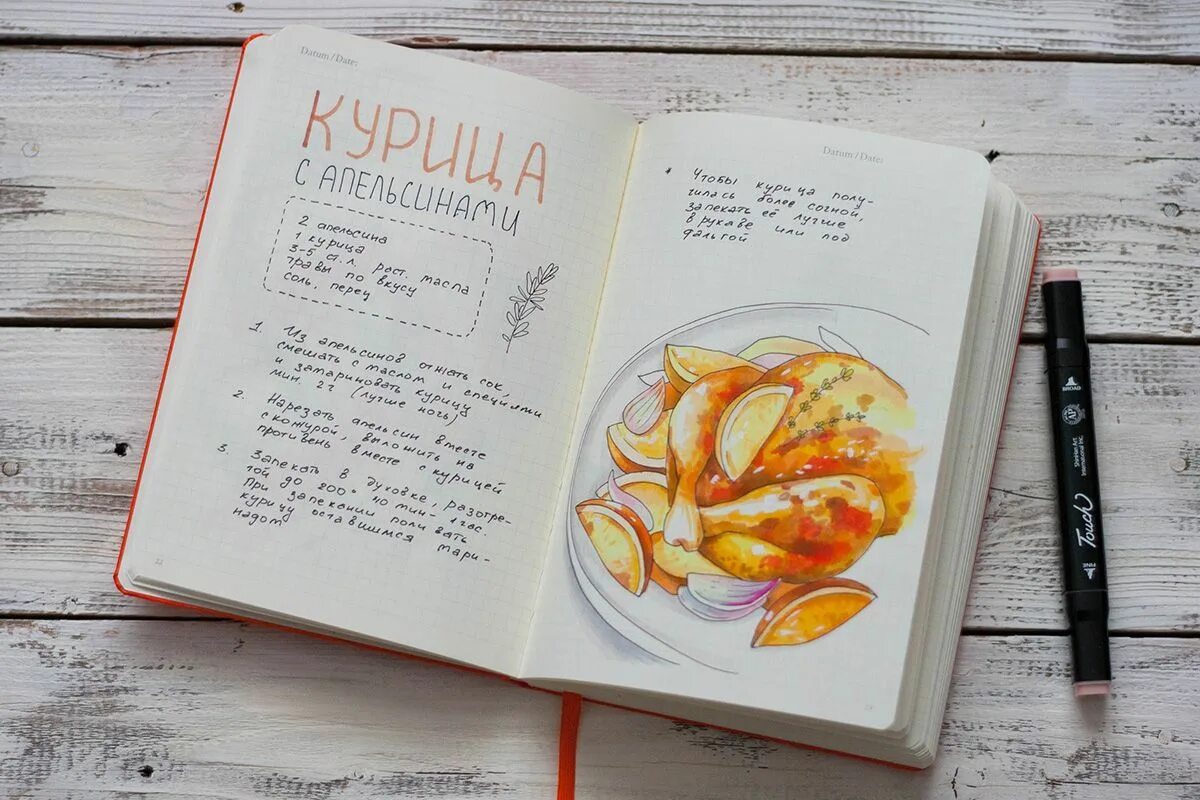 Datum/Date:
КУРИЦА
С АПЕЛЬСИНАМИ
2 апельсина
1 курица
3-5 ст.л. раст. масла
травы по вкусу
соль, перец
1. Из апельсинов отжать сок,
смешать с маслом и специями
и замариновать курицу
мин. 2ч (лучше ночь)
2. Нарезать апельсин вместе
с кожурой, выложить на
противень вместе с курицей
3. Запекать в духовке, разогре-
той до 200° 40 мин - 1 час.
При запекании поливать
курицу оставшимся мари-
надом
22
Datum/Date:
* Чтобы курица полу-
чилась более сочной,
запекать её лучше
в рукаве или под
фальгой
BROAD
AP
ShinHan Art
International Inc.
Touch
FINE